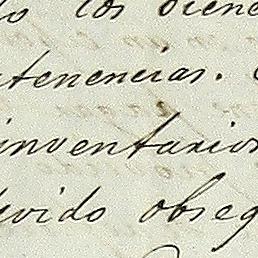 los biene
tenencias.
inventarios
vido obseq